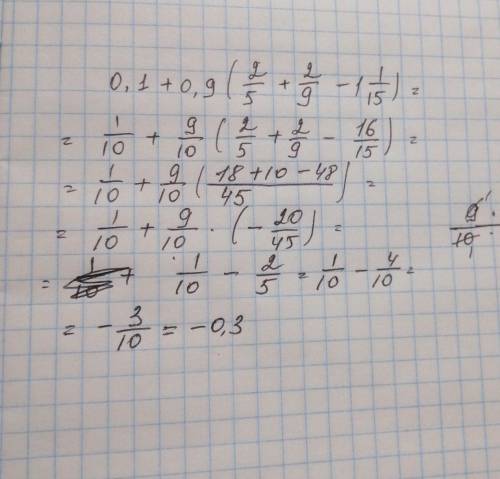 0,1 + 0,9 (2/5 + 2/9 - 1 1/15) =
= 1/10 + 9/10 (2/5 + 2/9 - 16/15) =
= 1/10 + 9/10 ((18 + 10 - 48)/45) =
= 1/10 + 9/10 · (- 20/45) =
= 1/10 - 2/5 = 1/10 - 4/10 =
= - 3/10 = -0,3